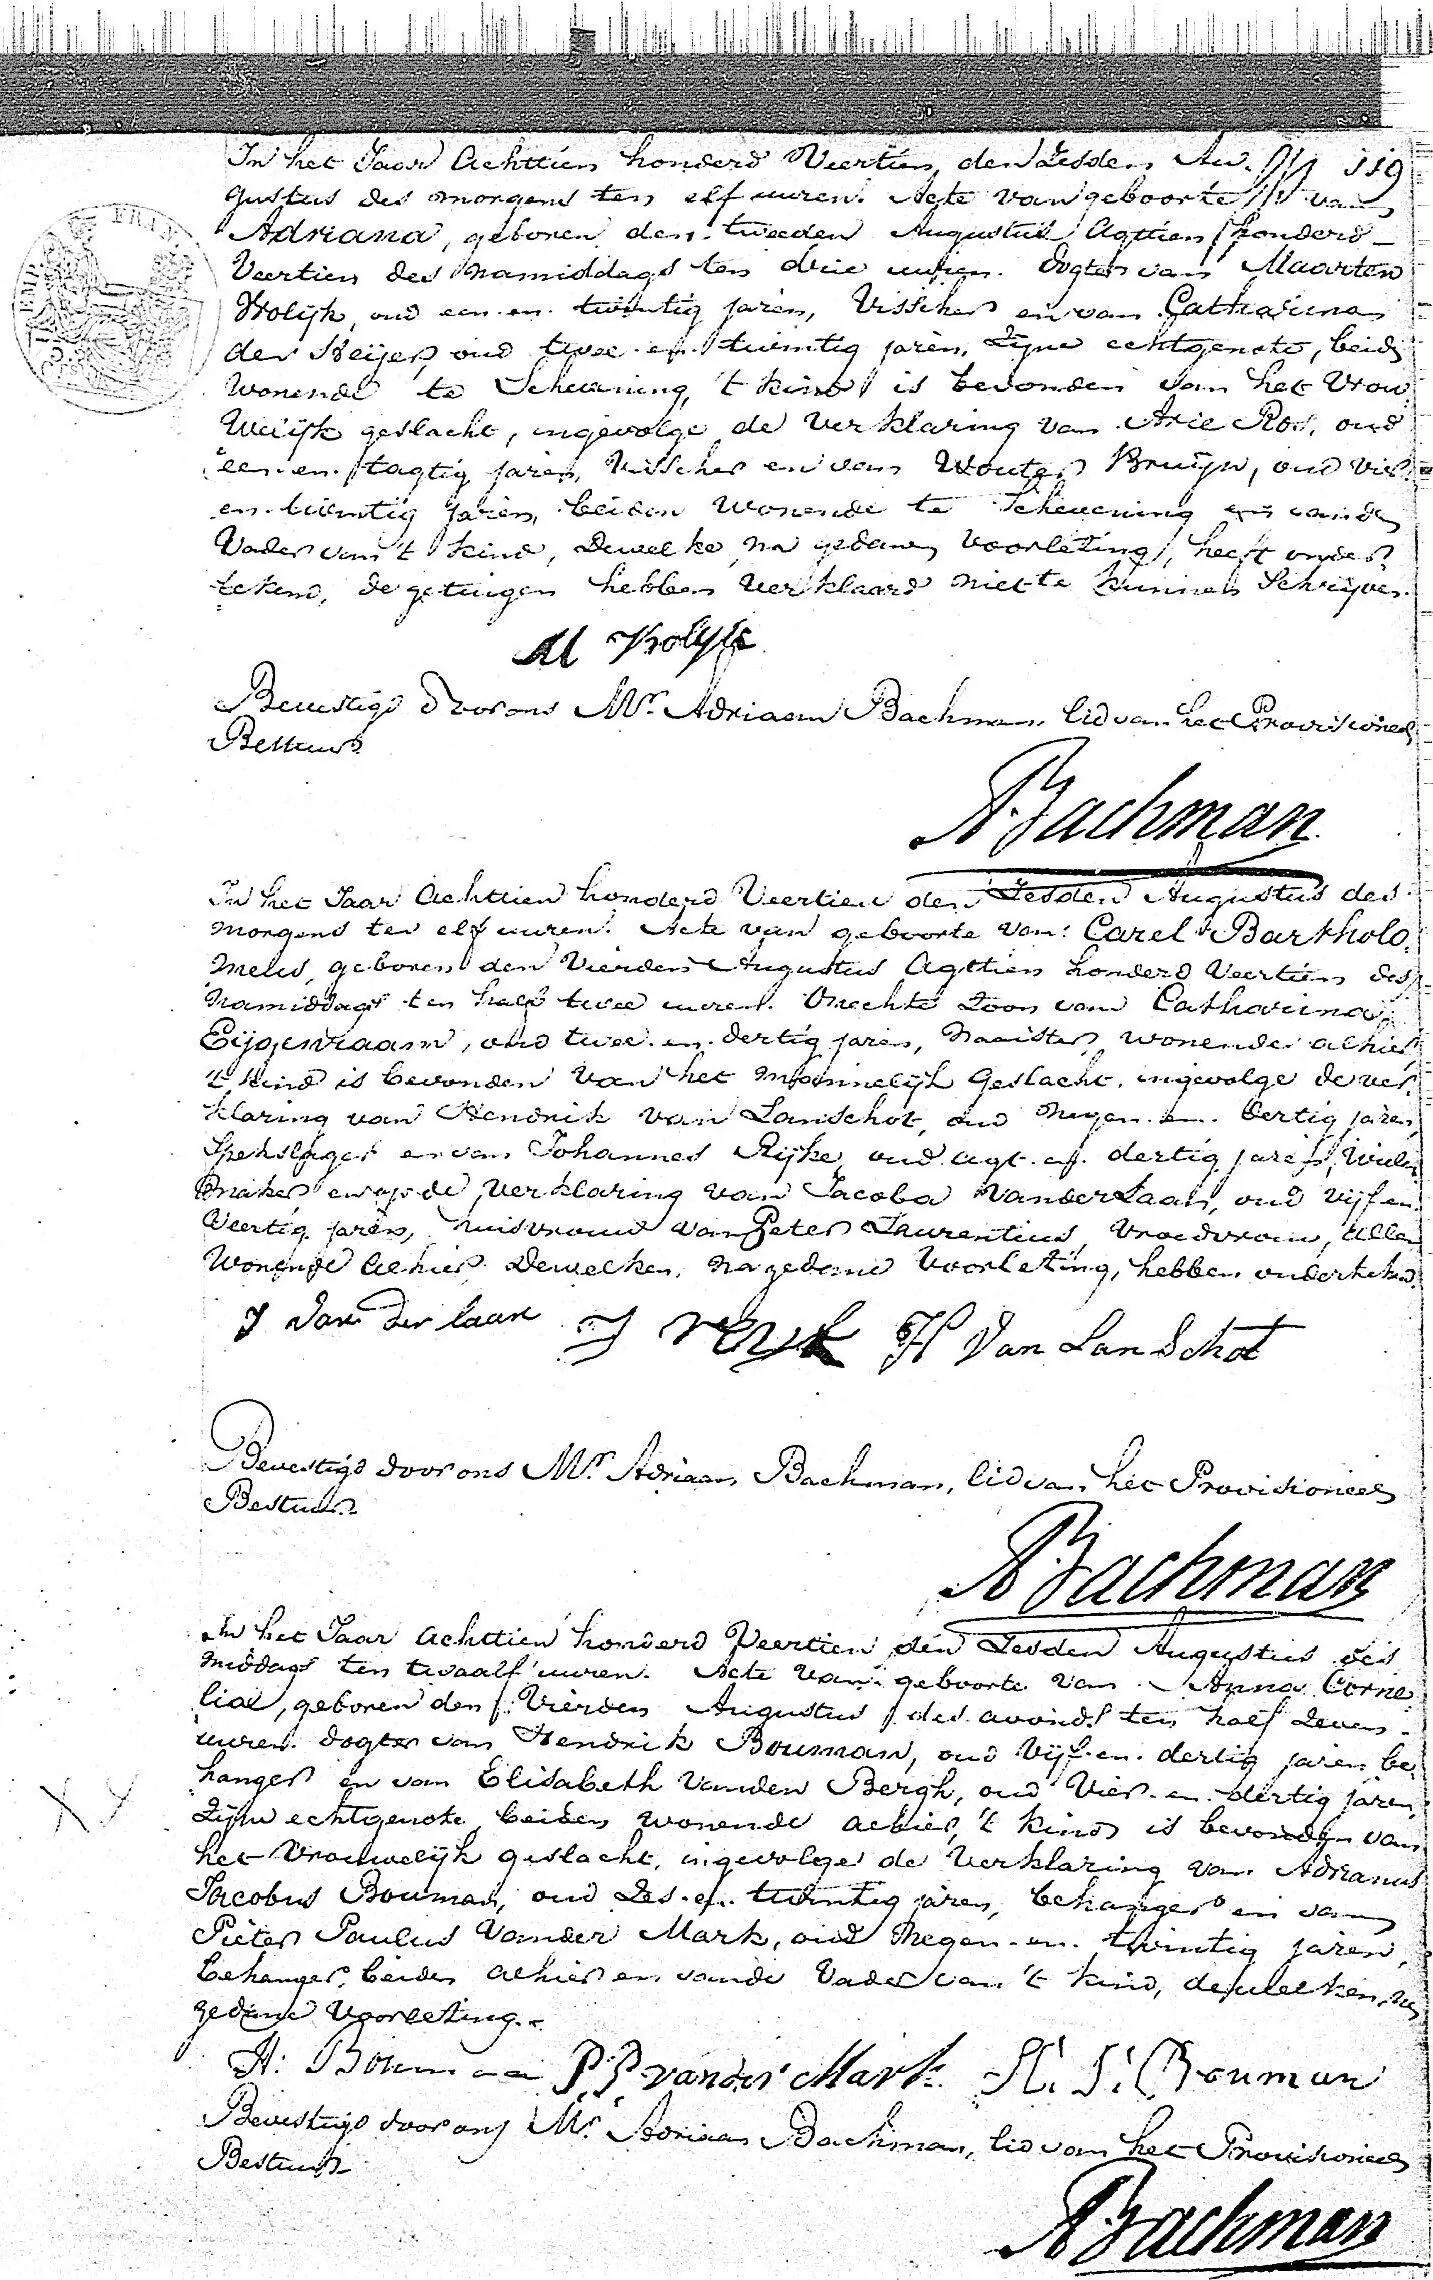 In het Jaar Achttien honderd Veertien, den Zesden Au- 119
gustus des morgens ten elf uuren. Acte van geboorte van
Adriana, geboren den tweeden Augustus Agttien honderd
Veertien des namiddags ten drie uuren. Dogter van Maarten
Krolijk, oud een en twintig jaren, Visscher en van Catharina
den Heijer, oud twee en twintig jaren, Zijne echtgenote, beide
wonende te Schevening, 't kind is bevonden van het Vrou
welijk geslacht, ingevolge de verklaring van Arie Ros, oud
een en tagtig jaren, Visscher en van Wouter Bruijn, oud vier
en twintig jaren, beiden wonende te Schevening en vanden
Vader van 't kind, dewelke, na gedane voorlezing, heeft onder
tekend, de getuigen hebben verklaard niet te kunnen schrijven.
M Krolijk
Bevestigd door ons Mr. Adriaan Bachman, lid van het Provisioneel
Bestuur.
A Bachman
In het Jaar Achttien honderd Veertien den Zesden Augustus des
morgens ten elf uuren. Acte van geboorte van: Carel Bartholo
meus, geboren den Vierden Augustus Agttien honderd Veertien des
namiddags ten half twee uuren. Onechte Zoon van Catharina
Eijgenraam, oud twee en dertig jaren, Naaister, wonende alhier
't kind is bevonden van het mannelijk Geslacht, ingevolge de ver
klaring van Hendrik van Lanschot, oud negen en dertig jaren,
Spekslager en van Johannes Rijke, oud agt en dertig jaren, Wiele
maker en op de verklaring van Jacoba Vander Laan, oud vijf en
Veertig jaren, huisvrouw van Peter Laurentius, Vroedvrouw, allen
wonende alhier, dewelken, na gedane voorlezing, hebben ondertekend.
J van der laan J reyk H Van Lan Schot
Bevestigd door ons Mr. Adriaan Bachman, lid van het Provisioneel
Bestuur.
A Bachman
In het Jaar Achttien honderd Veertien den Zesden Augustus des
middags ten twaalf uuren. Acte van geboorte van Anna Corne
lia, geboren den Vierden Augustus des avonds ten half Zeven
uuren. Dogter van Hendrik Bouman, oud Vijf en dertig jaren be
hanger en van Elisabeth Vanden Bergh, oud Vier en dertig jaren,
Zijne echtgenote, beiden wonende alhier, 't kind is bevonden van
het Vrouwelijk geslacht, ingevolge de verklaring van Adrianus
Jacobus Bouman, oud Zes en twintig jaren, behanger en van
Pieter Paulus Vander Mark, oud Negen en twintig jaren,
behanger, beiden alhier en vande Vader van 't kind, dewelken, na
gedane voorlezing.
H: Bouman P. P. van der Mark A. J. Bouman
Bevestigd door ons Mr. Adriaan Bachman, lid van het Provisioneel
Bestuur.
A Bachman